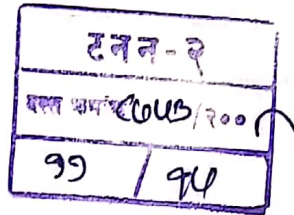 टनन-२
दस्त क्रमांक ८७५३/२००
११ / १५